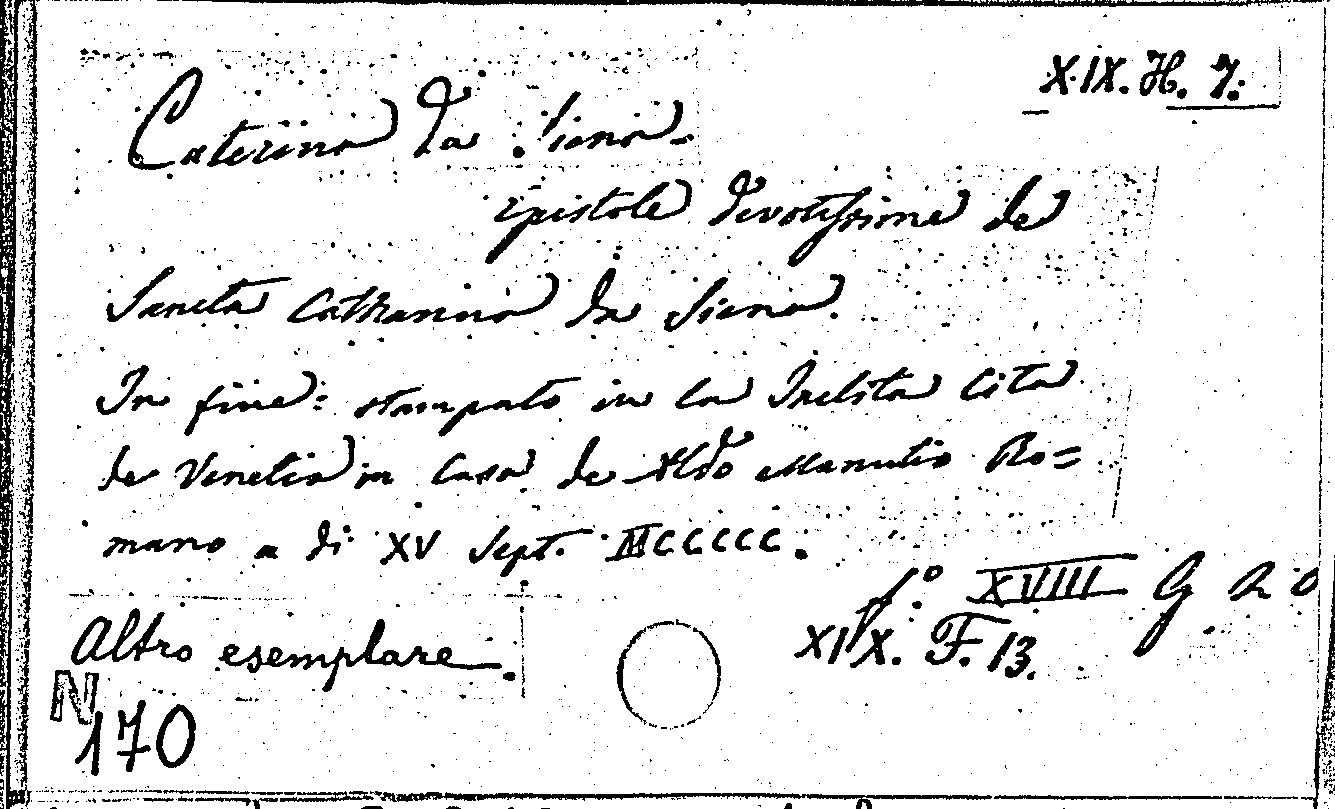 XIX. H. 7.
Caterina da Siena.
Epistole devotissime de
Sancta Catharina da Siena.
In fine: stampato in la Inclita Cita
de Venetia in Casa de Aldo Manutio Ro=
mano a di XV Sept. MCCCCC.
f.º XVIII G
XIX. F. 13.
Altro esemplare.
N
170